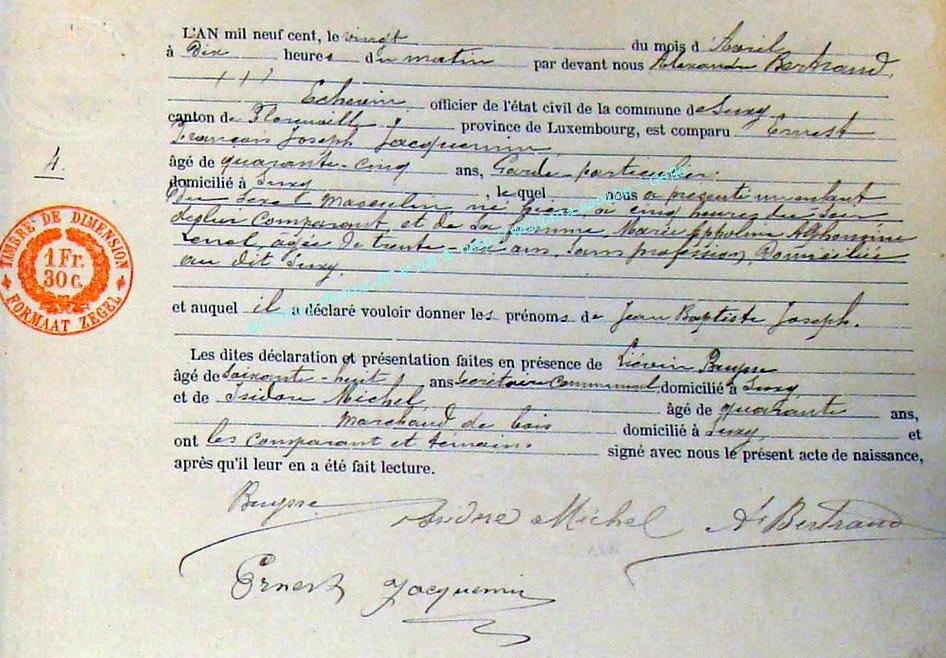 L'AN mil neuf cent, le vingt du mois d'Avril
à Dix heures du matin par devant nous Alexandre Bertrand,
Echevin, officier de l'état civil de la commune de Suxy
canton de Florenville province de Luxembourg, est comparu Ernest
François Joseph Jacquemin,
4. âgé de quarante-cinq ans, Garde particulier.
domicilié à Suxy, lequel nous a présenté un enfant
du sexe Masculin né hier à cinq heures du soir
de lui Comparant et de sa femme Marie Alphonsine
âgée de trente ans, Sans profession, Domiciliée
au dit Suxy.
et auquel il a déclaré vouloir donner les prénoms de Jean Baptiste Joseph.
Les dites déclaration et présentation faites en présence de Liévin Buysse
âgé de Soixante-huit ans Secrétaire Communal, domicilié à Suxy
et de Isidore Michel, âgé de quarante ans,
Marchand de bois domicilié à Suxy, et
ont les comparant et témoins signé avec nous le présent acte de naissance,
après qu'il leur en a été fait lecture.
Buysse Isidore Michel A. Bertrand
Ernest Jacquemin
TIMBRE DE DIMENSION
1 Fr.
30 c.
FORMAAT ZEGEL